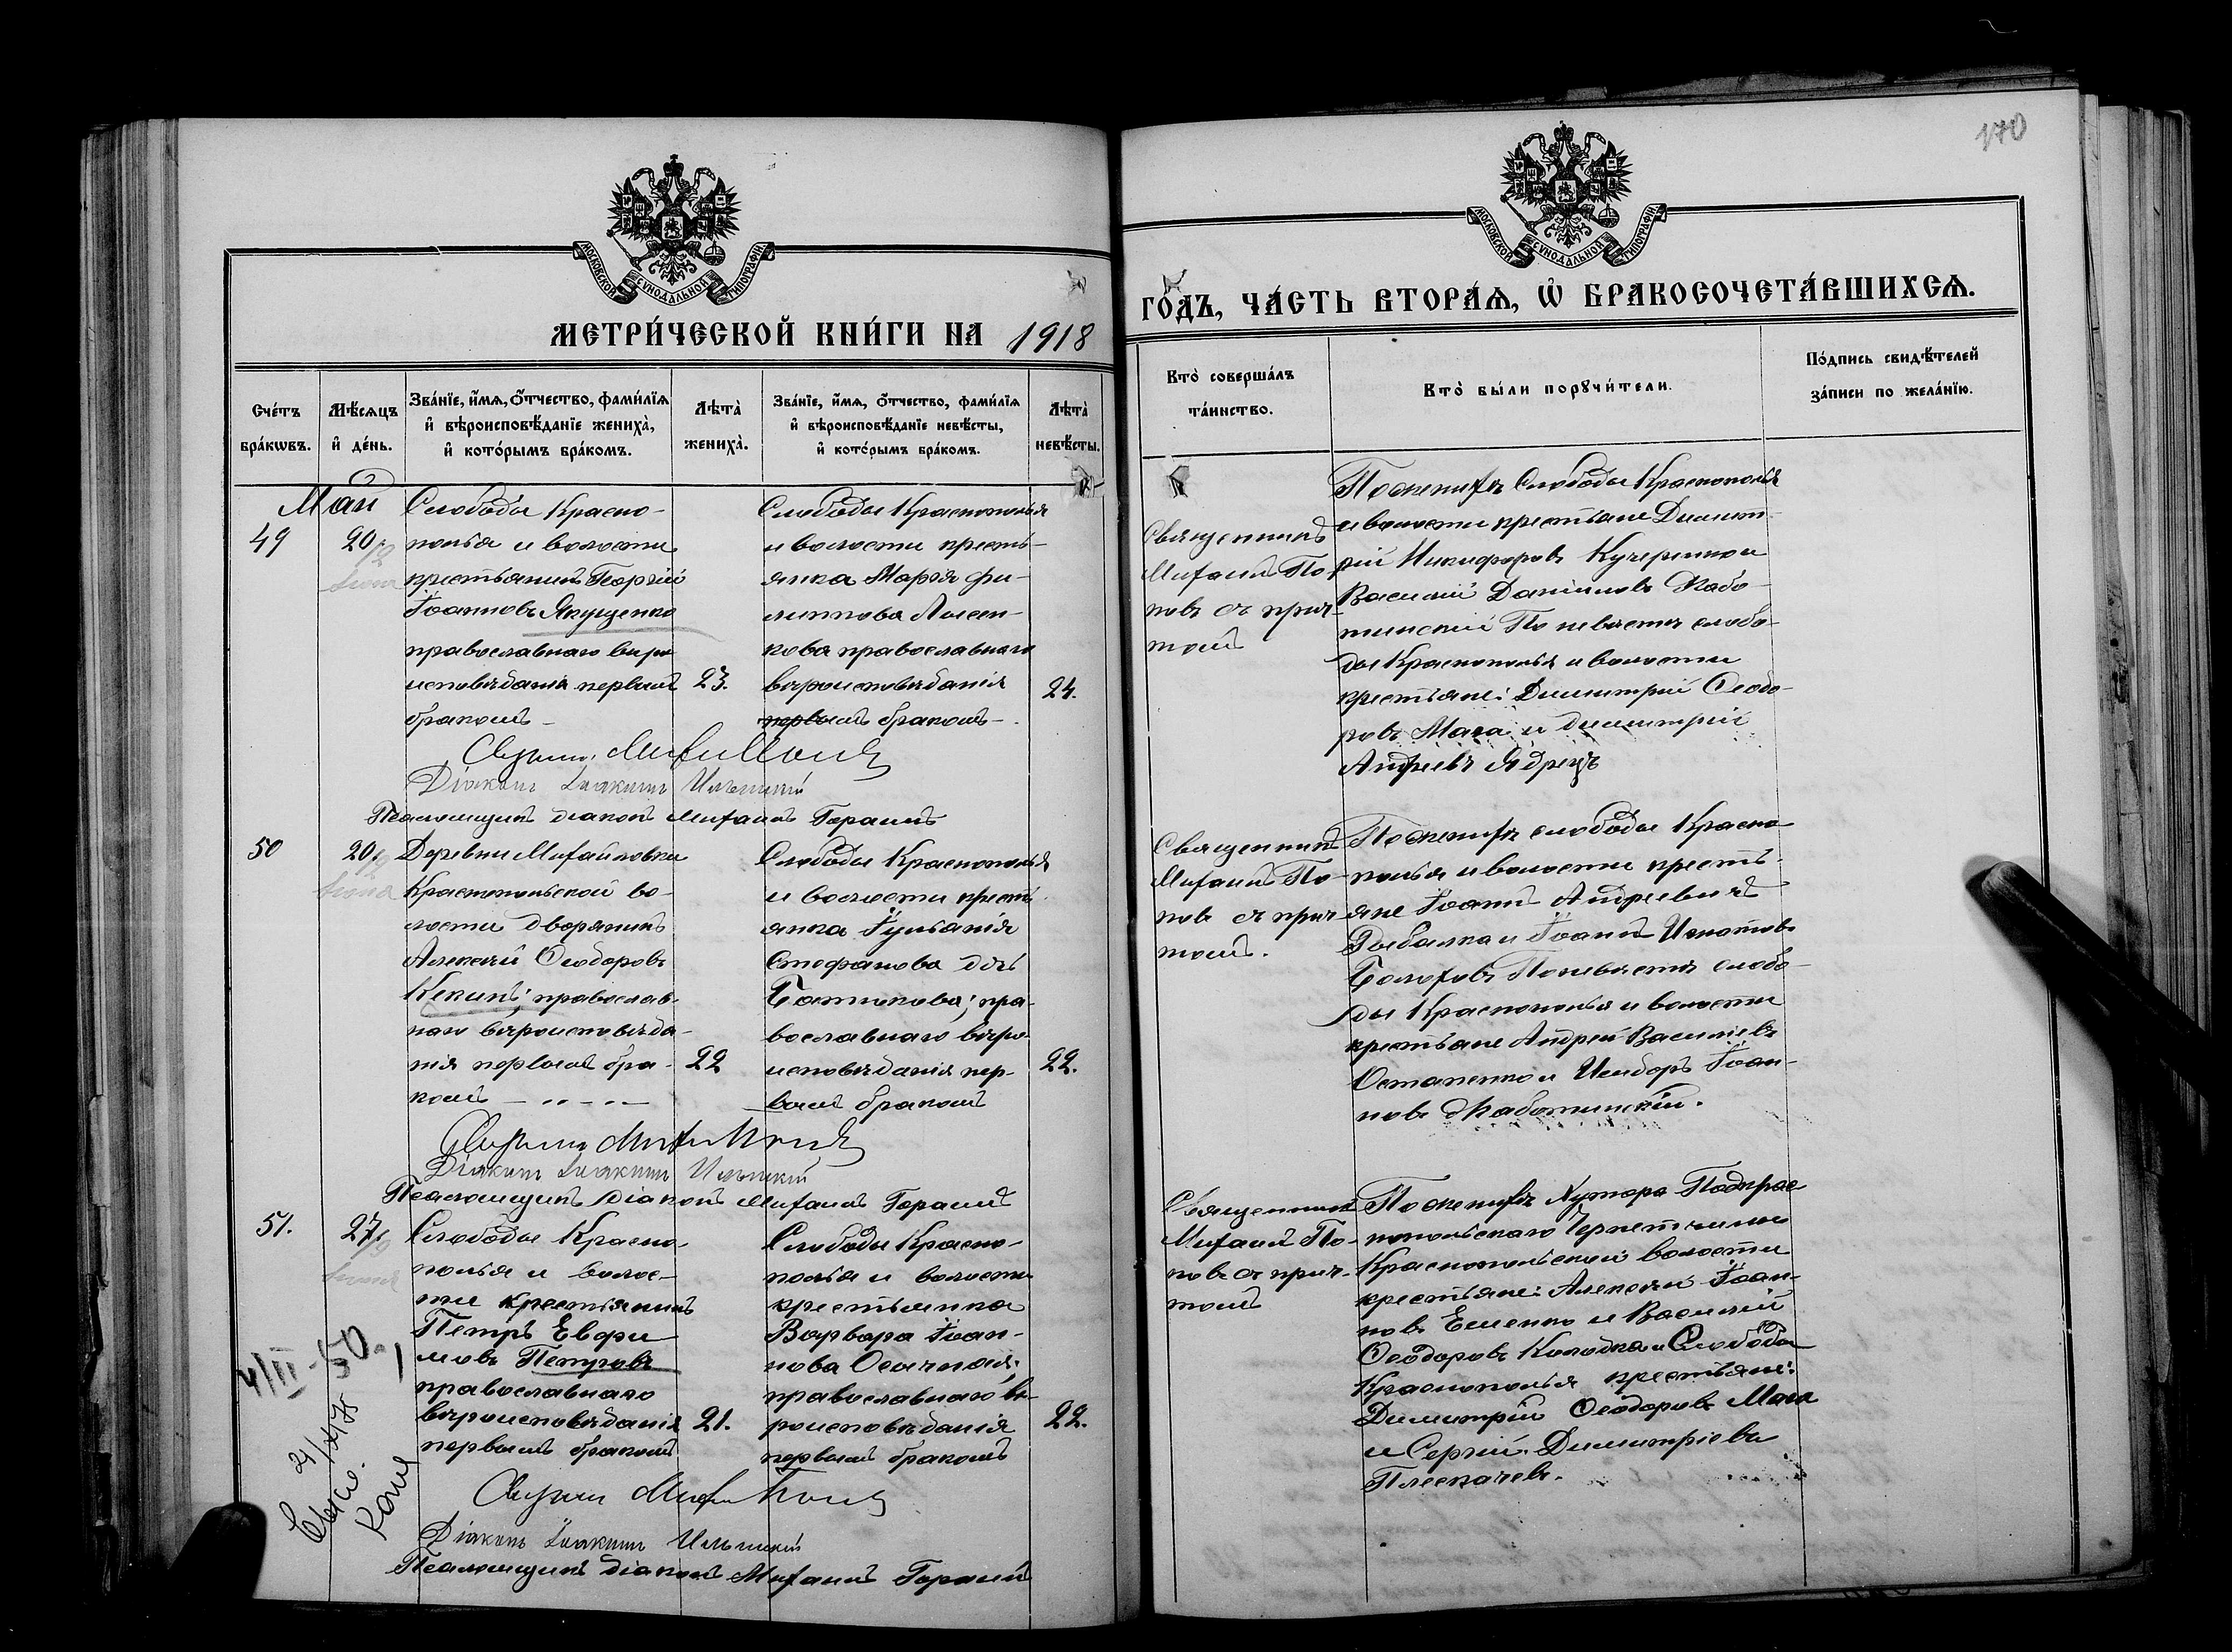 170
МОСКОВСКОЙ СѴНОДАЛЬНОЙ ТИПОГРАФІИ
МЕТРИ́ЧЕСКОЙ КНИ́ГИ НА 1918
Сче́тъ бра́кѡвъ.
Мѣ́сяцъ и҆ де́нь.
Зва́нїе, и҆́мѧ, ѻ҆́тчество, фами́лїѧ
и҆ вѣроисповѣ́данїе жениха̀,
и҆ кото́рымъ бра́комъ.
Лѣта̀ жениха̀.
Зва́нїе, и҆́мѧ, ѻ҆́тчество, фами́лїѧ
и҆ вѣроисповѣ́данїе невѣ́сты,
и҆ кото́рымъ бра́комъ.
Лѣта̀ невѣ́сты.
Май
49
20
Слободы Красно-
полья и волости
крестьянинъ Георгій
Іоанновъ Якущенко
православнаго вѣро
исповѣданія первымъ
бракомъ –
23.
Слободы Краснополья
и волости кресть-
янка Марія Фи-
липпова Лысен-
кова православнаго
вѣроисповѣданія
первымъ бракомъ –
24.
Діаконъ Іоакимъ Ильицкій
Псаломщикъ діаконъ Михаилъ Гораинъ
50
20
Деревни Михайловки
Краснопольской во-
лости дворянинъ
Алексѣй Ѳеодоровъ
Кекинъ; православ-
наго вѣроисповѣда-
нія первымъ бра-
комъ
22
Слободы Краснополья
и волости кресть
янка Іуліанія
Стефанова
православнаго вѣро-
исповѣданія пер-
вымъ бракомъ
22.
Діаконъ Іоакимъ Ильицкій
Псаломщикъ діаконъ Михаилъ Гораинъ
51.
27
Слободы Красно-
полья и волос-
ти крестьянинъ
Петръ Евфи
мовъ Петровъ
православнаго
вѣроисповѣданія
первымъ бракомъ
21.
Слободы Красно-
полья и волости
крестьянка
Варвара Іоан-
нова
православнаго вѣ-
роисповѣданія
первымъ бракомъ
22.
Діаконъ Іоакимъ Ильицкій
Псаломщикъ діаконъ Михаилъ Гораинъ
4/II-50
МОСКОВСКОЙ СѴНОДАЛЬНОЙ ТИПОГРАФІИ
ГО́ДЪ, ЧА́СТЬ ВТОРА́Ѧ, Ѽ БРАКОСОЧЕТА́ВШИХСѦ.
Кто̀ соверша́лъ
та́инство.
Кто̀ бы́ли порꙋчи́тели.
По́дпись свидѣ́телей
за́писи по жела́нїю.
Священникъ
Михаилъ По-
повъ съ прич-
томъ
По женихѣ Слободы Краснополья
и волости крестьяне Димит-
рій Никифоровъ Кучеренко и
Василій Даніиловъ Жабо-
тинскій По невѣстѣ слобо-
ды Краснополья и волости
крестьяне: Димитрій Ѳеодо-
ровъ Мага и Димитрій
Андреевъ Ядрецъ
Священникъ
Михаилъ По-
повъ съ прич-
томъ.
По женихѣ слободы Красно
полья и волости кресть-
яне Іоаннъ Андреевичъ
Рыбалка и Іоаннъ Игнатовъ
Болоховъ По невѣстѣ слобо-
ды Краснополья и волости
крестьяне Андрей Василіевъ
Остапенко и Исидоръ Іоан-
новъ Жаботинскій.
Священникъ
Михаилъ По-
повъ съ прич-
томъ
По женихѣ Хутора Подкрас
нопольскаго
Краснопольской волости
крестьяне: Алексѣй Іоан-
новъ Еменко и Василій
Ѳеодоровъ Колодка и Слободы
Краснополья крестьяне:
Димитрій Ѳеодоровъ Мага
и Сергій Димитріевъ
Плескачевъ.